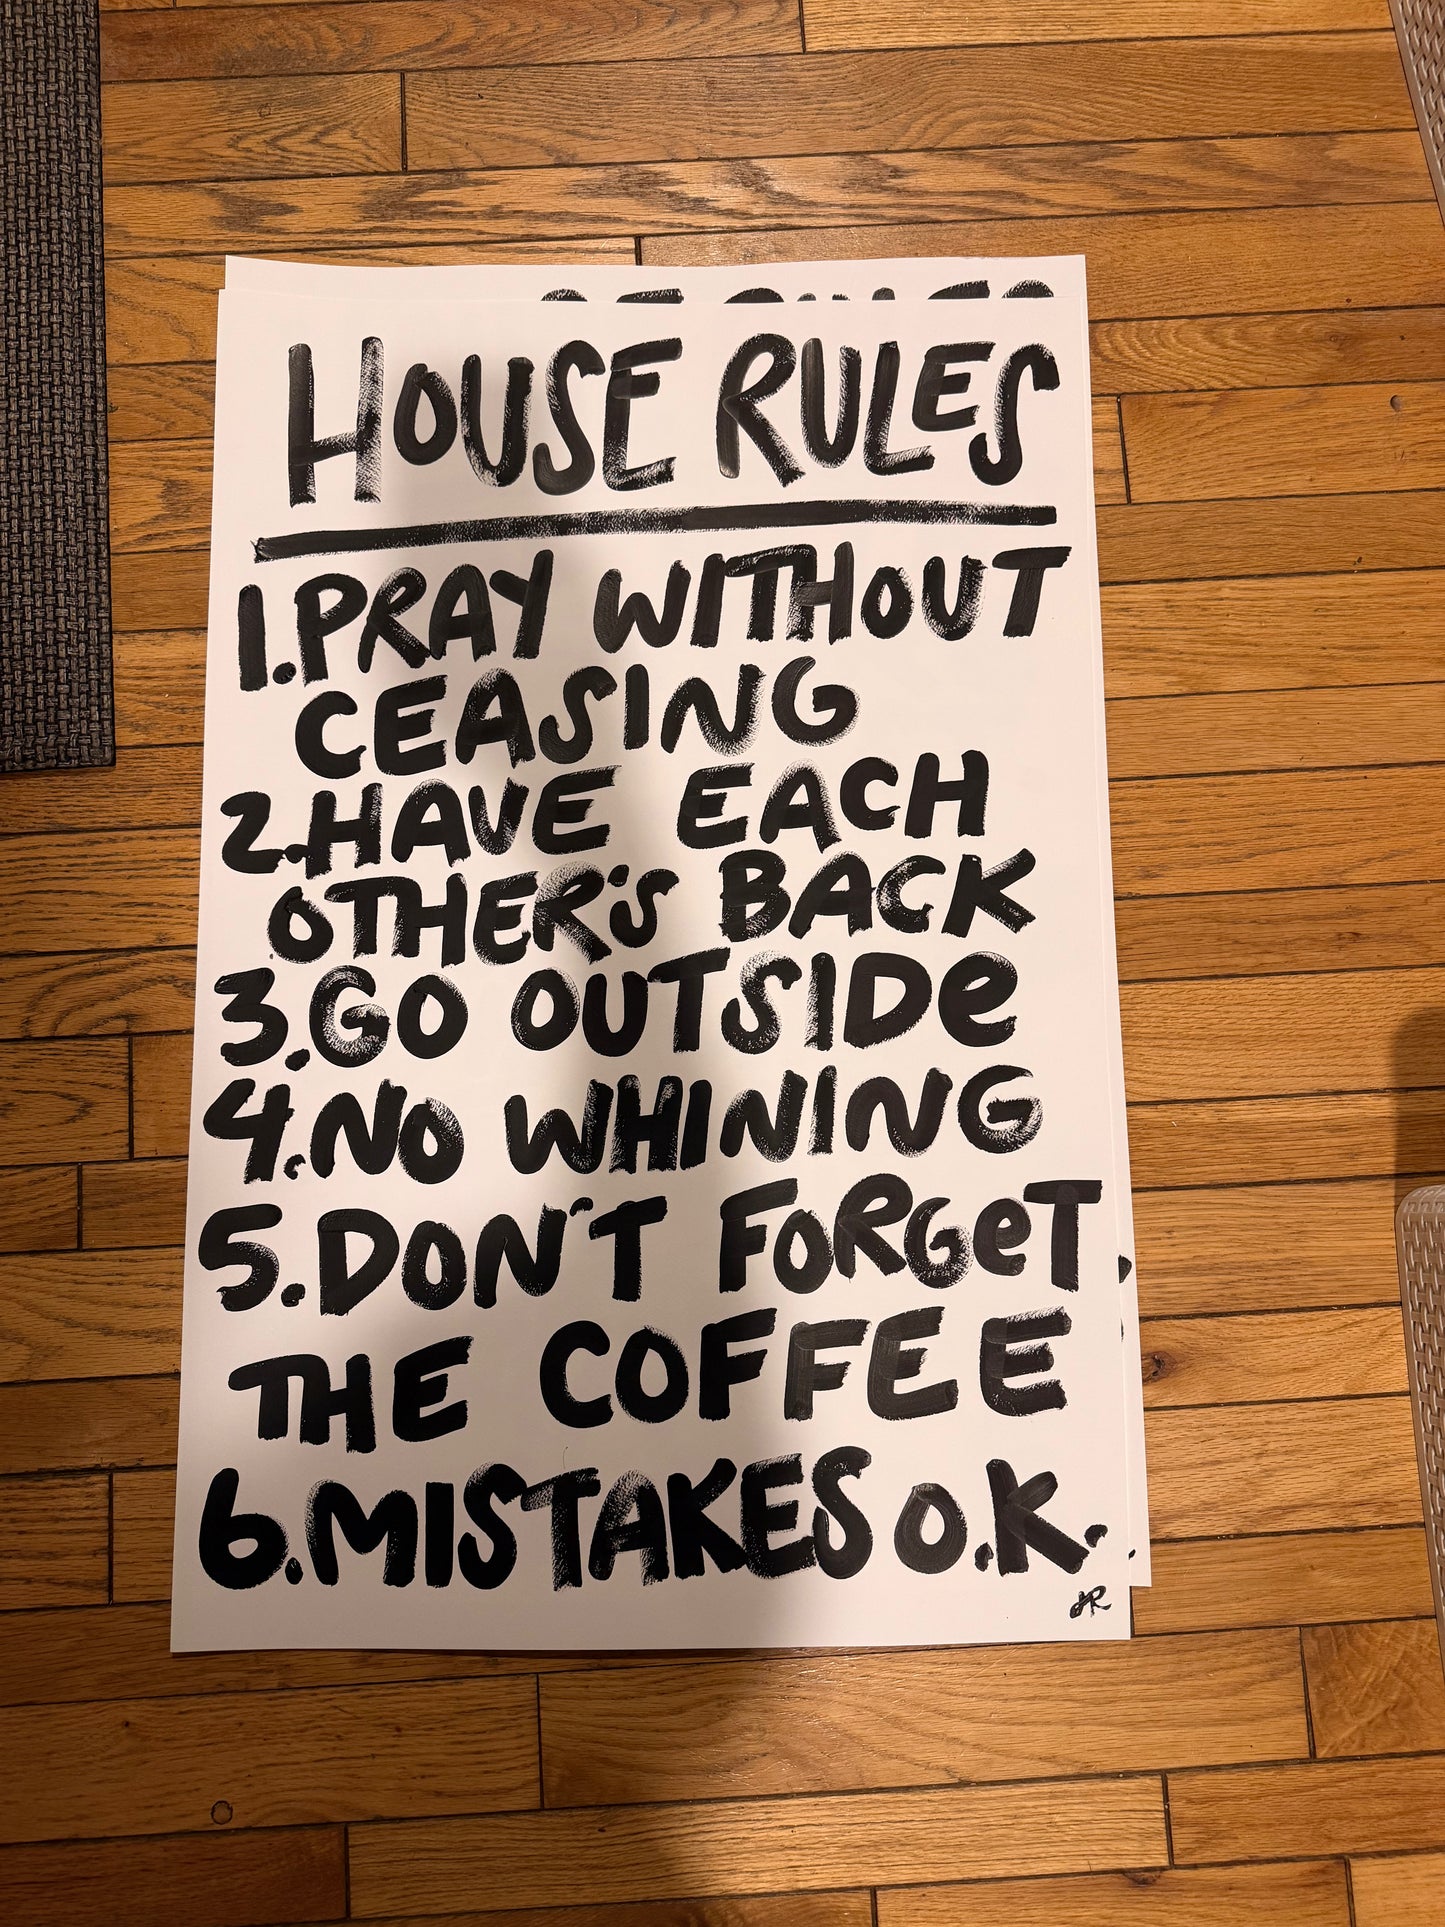 HOUSE RULES
1. PRAY WITHOUT
CEASING
2. HAVE EACH
OTHER'S BACK
3. GO OUTSIDE
4. NO WHINING
5. DON'T FORGET
THE COFFEE
6. MISTAKES O.K.
JR